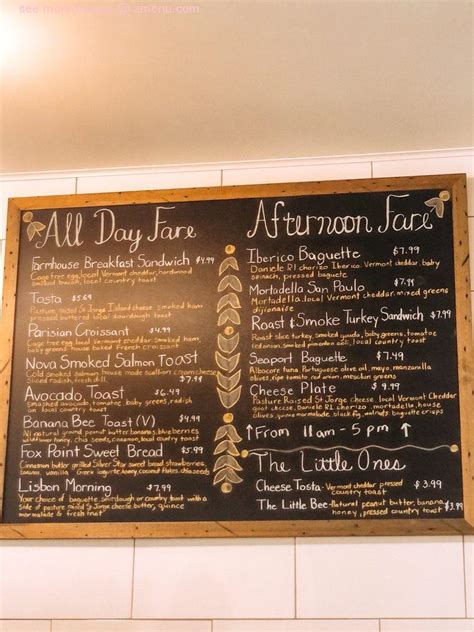 see more
menu.com
All Day Fare
Farmhouse Breakfast Sandwich $4.99
Cage free egg, local Vermont cheddar, hardwood
smoked bacon, local country toast
Tosta $5.69
Pasture raised St Jorge Island cheese, smoked ham
pressed buttered local downtoast
Parisian Croissant $4.99
Cage free egg, local Vermont cheddar, smoked ham,
baby greens, house baked French croissant
Nova Smoked Salmon Toast
Cold smoked salmon, house made cream cheese
Sliced radish, fresh dill $7.
Avocado Toast $6.49
Smashed avocado, tomatoe, baby greens, radish
on local country toast
Banana Bee Toast (V) $4.99
All natural ground peanut butter, bananas, blueberries
wildflower honey, chia seeds, cinnamon, local country toast
Fox Point Sweet Bread $5.99
Cinnamon butter grilled Silver Star sweet bread, strawberries,
banana, vanilla Greek yogurt, honey, coconut flakes, chia seeds
Lisbon Morning $7.99
Your choice of baguette, sourdough or country toast with a
side of pasture raised St Jorge cheese, butter, quince
marmalade & fresh fruit
Afternoon Fare
Iberico Baguette $7.99
Daniele RI chorizo Iberico, Vermont cheddar, baby
spinach, pressed baguette
Mortadella San Paulo $7.99
Mortadella, local Vermont cheddar, mixed greens
dijonaise
Roast & Smoke Turkey Sandwich $7.99
Roast slice turkey, smoked gouda, baby greens, tomatoe
aioli, local country toast
Seaport Baguette $7.49
Albacore tuna, Portuguese olive oil, mayo, manzanilla
olives, ripe tomato, red onion, mesclun greens,
baguette
Cheese Plate $9.99
Pasture Raised St Jorge cheese, local Vermont Cheddar
goat cheese, Daniele RI chorizo, mortadella, house
olives, quince marmalade, black fig, walnuts, baguette crisps
↑ From 11am - 5 pm ↑
The Little Ones
Cheese Tosta- Vermont cheddar pressed $3.99
country toast
The Little Bee- Natural peanut butter, banana
honey, pressed country toast $3.99